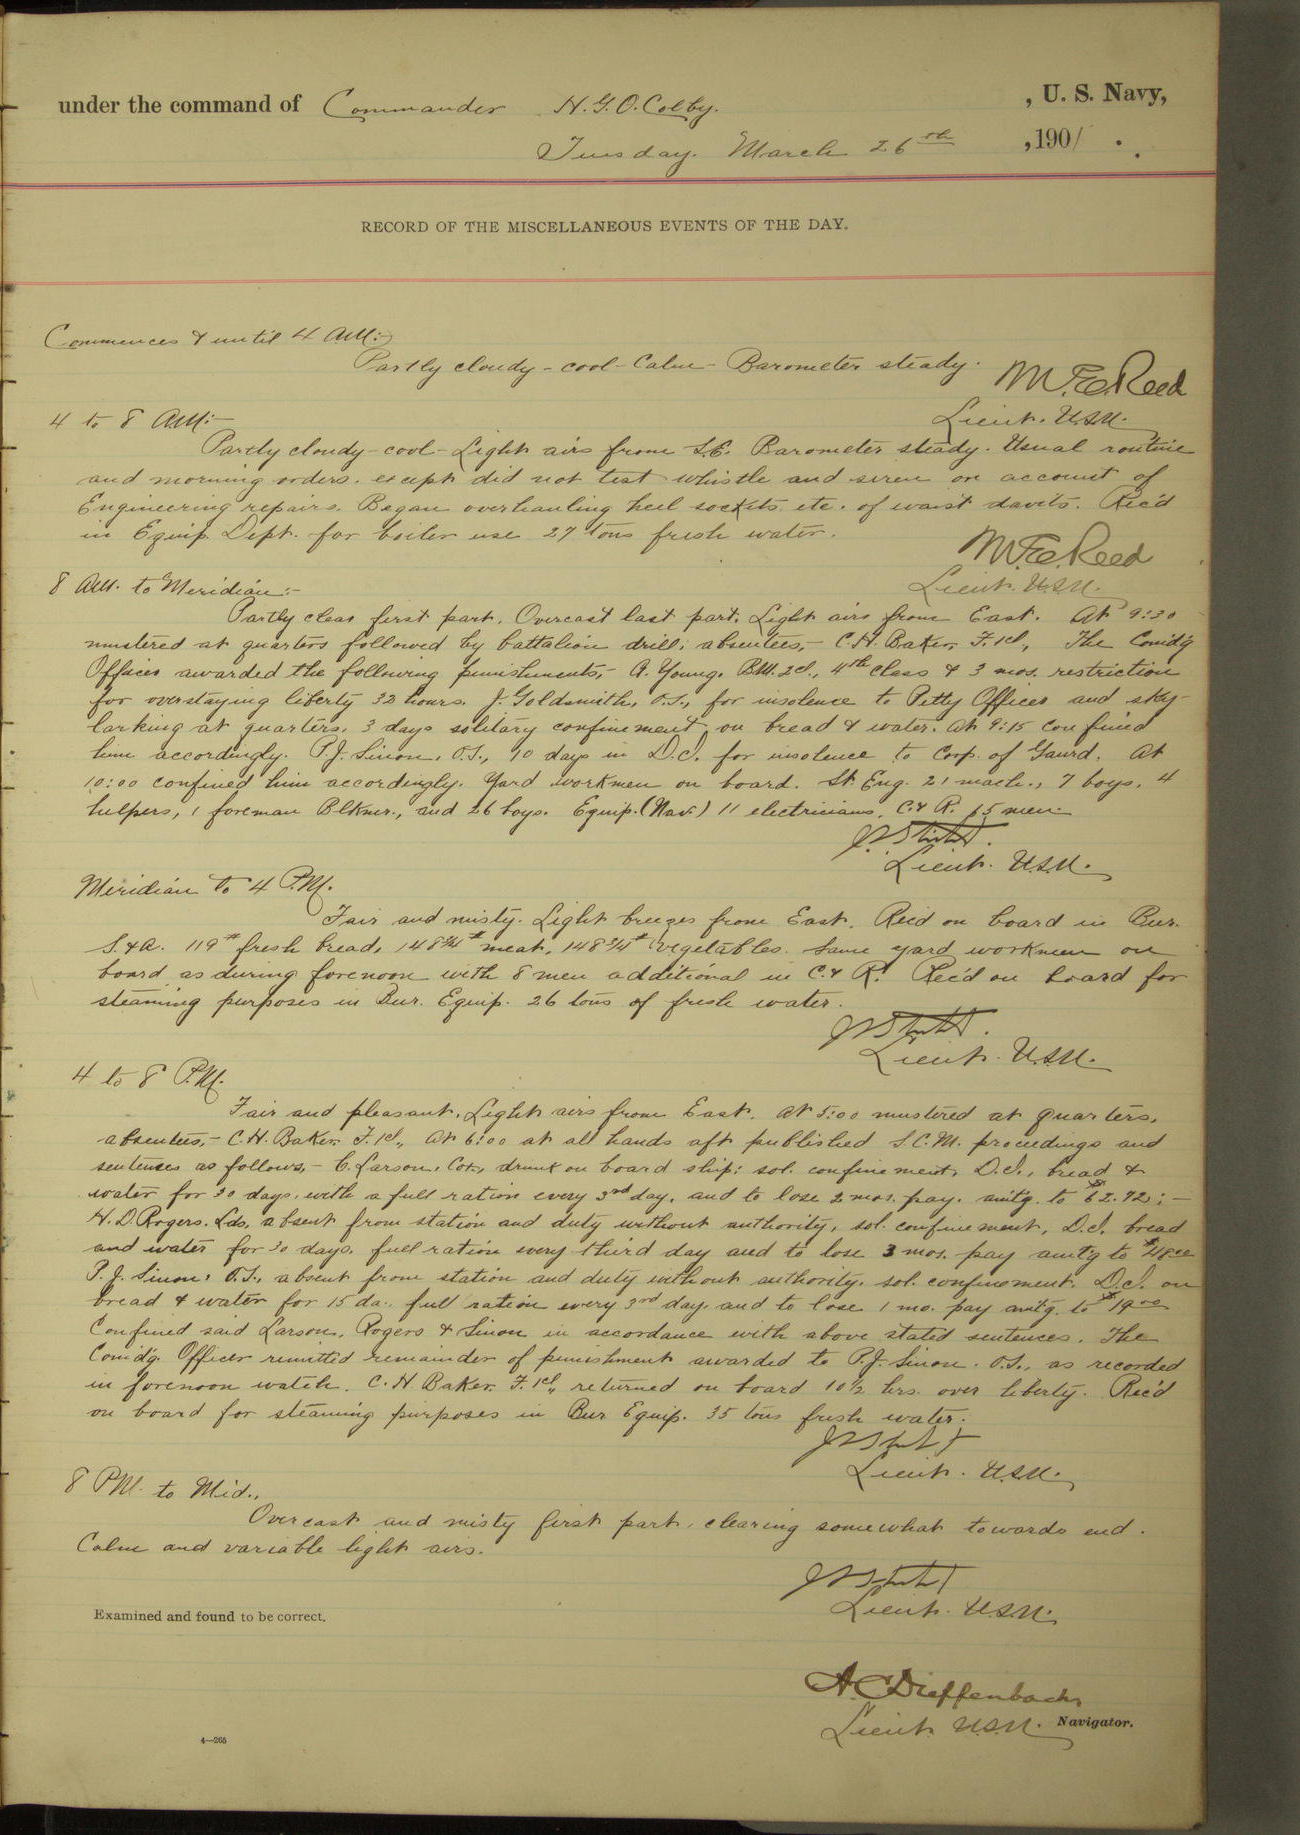 under the command of Commander H. G. O. Colby. , U. S. Navy,
Tuesday. March 26th ,1901 .
RECORD OF THE MISCELLANEOUS EVENTS OF THE DAY.
Commences & until 4 AM:-
Partly cloudy - cool - Calm - Barometer steady.
M. E. Reed
Lieut. USN.
4 to 8 AM:-
Partly cloudy - cool - Light airs from S.E. Barometer steady. Usual routine
and morning orders. except did not test whistle and siren on account of
Engineering repairs. Began overhauling heel sockets etc. of waist davits. Rec'd
in Equip. Dept. for boiler use 27 tons fresh water.
M. E. Reed
Lieut. USN.
8 AM. to Meridian:-
Partly clear first part, Overcast last part. Light airs from East. At 9:30
mustered at quarters followed by battalion drill; absentees,- C. H. Baker, F.1cl, The Comd'g
Officer awarded the following punishments,- A. Young. BM. 2cl., 4th class & 3 mos. restriction
for overstaying liberty 32 hours. J. Goldsmith, O.S., for insolence to Petty Officer and sky-
larking at quarters, 3 days solitary confinement, on bread & water. At 9:15 confined
him accordingly. P. J. Sinon, O.S., 10 days in D.I. for insolence to Corp. of Gaurd. At
10:00 confined him accordingly. Yard workmen on board. St. Eng. 21 mach., 7 boys, 4
helpers, 1 foreman Blkmr., and 26 boys. Equip. (Nav.) 11 electricians, C. & R. 15 men
Lieut. USN.
Meridian to 4 P.M.
Fair and misty. Light breezes from East. Rec'd on board in Bur.
S. & A. 119# fresh bread, 148 3/4# meat, 148 3/4# vegetables. Same yard workmen on
board as during forenoon with 8 men additional in C. & R. Rec'd on board for
steaming purposes in Bur. Equip. 26 tons of fresh water.
Lieut. USN.
4 to 8 P.M.
Fair and pleasant. Light airs from East. At 5:00 mustered at quarters,
absentees,- C. H. Baker F. 1cl., At 6:00 at all hands aft published S.C.M. proceedings and
sentences as follows,- C. Larson, Cox, drunk on board ship: sol. confinement, D.I., bread &
water for 30 days, with a full ration every 3rd day, and to lose 2 mos. pay. amt'g. to $62.72; -
H. D. Rogers. Lds, absent from station and duty without authority, sol. confinement, D.I. bread
and water for 30 days. full ration every third day and to lose 3 mos. pay amt'g to $48.00
P. J. Sinon, O.S., absent from station and duty without authority. sol. confinement. D.I. on
bread & water for 15 da. full ration every 3rd day. and to lose 1 mo. pay amt'g. to $19.00
Confined said Larson, Rogers & Sinon in accordance with above stated sentences. The
Comd'g. Officer remitted remainder of punishment awarded to P. J. Sinon. O.S., as recorded
in forenoon watch. C. H. Baker. F. 1cl., returned on board 10 1/2 hrs. over liberty. Rec'd
on board for steaming purposes in Bur Equip. 35 tons fresh water.
Lieut. USN.
8 PM. to Mid.,
Overcast and misty first part, clearing somewhat towards end.
Calm and variable light airs.
Lieut. USN.
Examined and found to be correct.
A. C. Dieffenbach
Lieut. USN. Navigator.
4—265